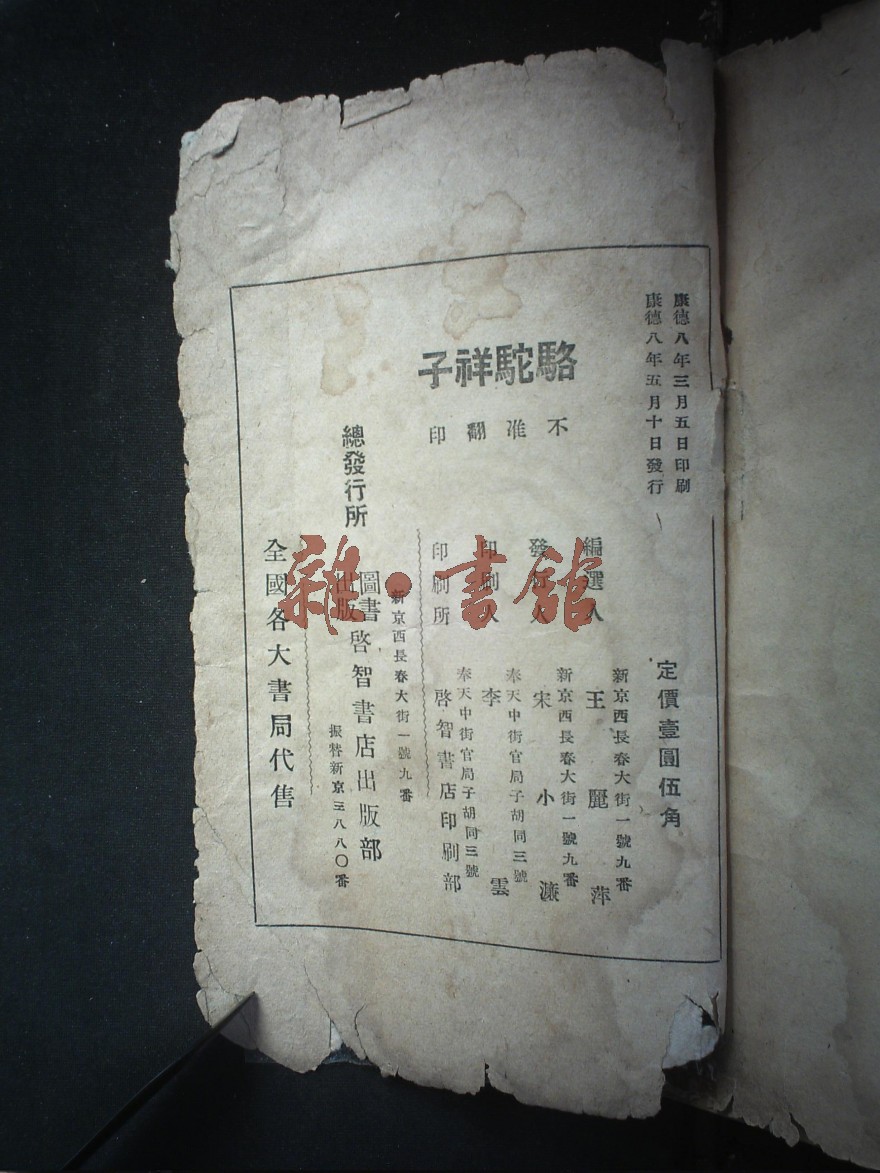 康德八年三月五日印刷
康德八年五月十日發行
定價壹圓伍角
駱駝祥子
不准翻印
新京西長春大街一號九番
編選人 王麗萍
新京西長春大街一號九番
發行人 宋小濂
奉天中街官局子胡同三號
印刷人 李雲
奉天中街官局子胡同三號
印刷所 啓智書店印刷部
新京西長春大街一號九番
總發行所 圖書出版 啓智書店出版部
振替新京三八八〇番
全國各大書局代售
雜·書館